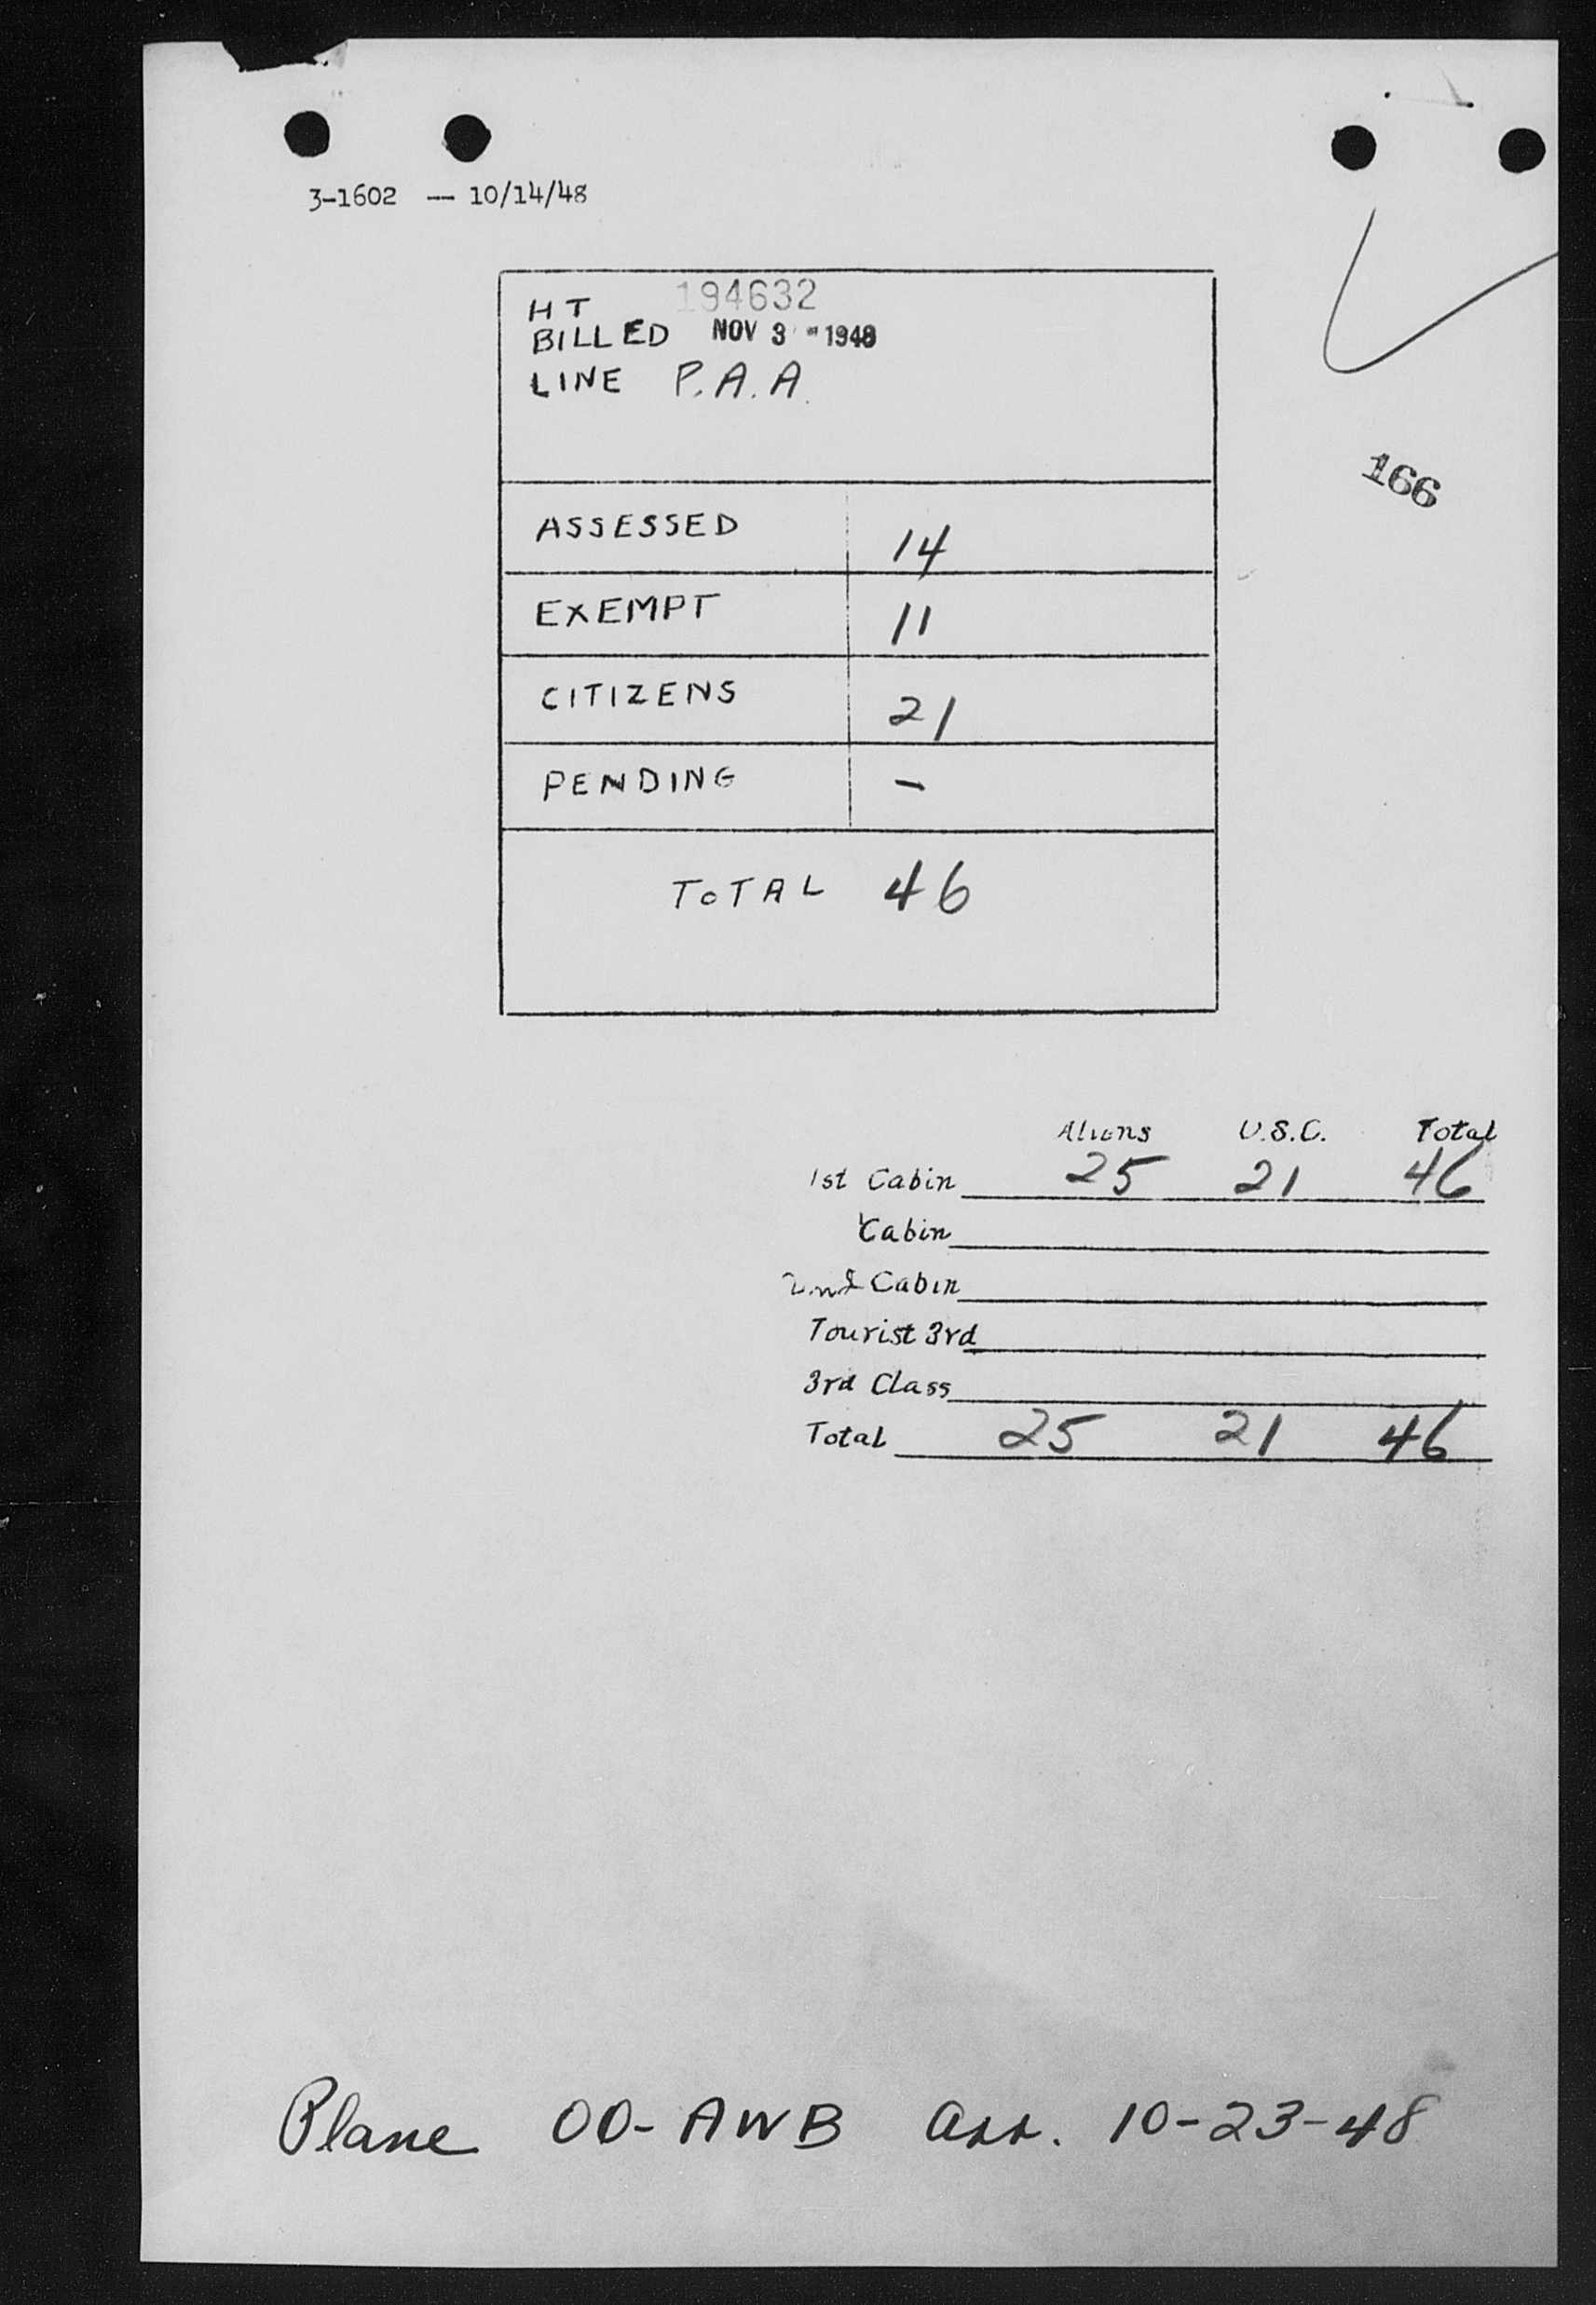 3-1602 -- 10/14/48
HT 194632
BILLED NOV 3 - 1948
LINE P.A.A.
166
ASSESSED 14
EXEMPT 11
CITIZENS 21
PENDING -
TOTAL 46
Aliens U.S.C. Total
1st Cabin 25 21 46
Cabin
2nd Cabin
Tourist 3rd
3rd Class
Total 25 21 46
Plane OO-AWB arr. 10-23-48